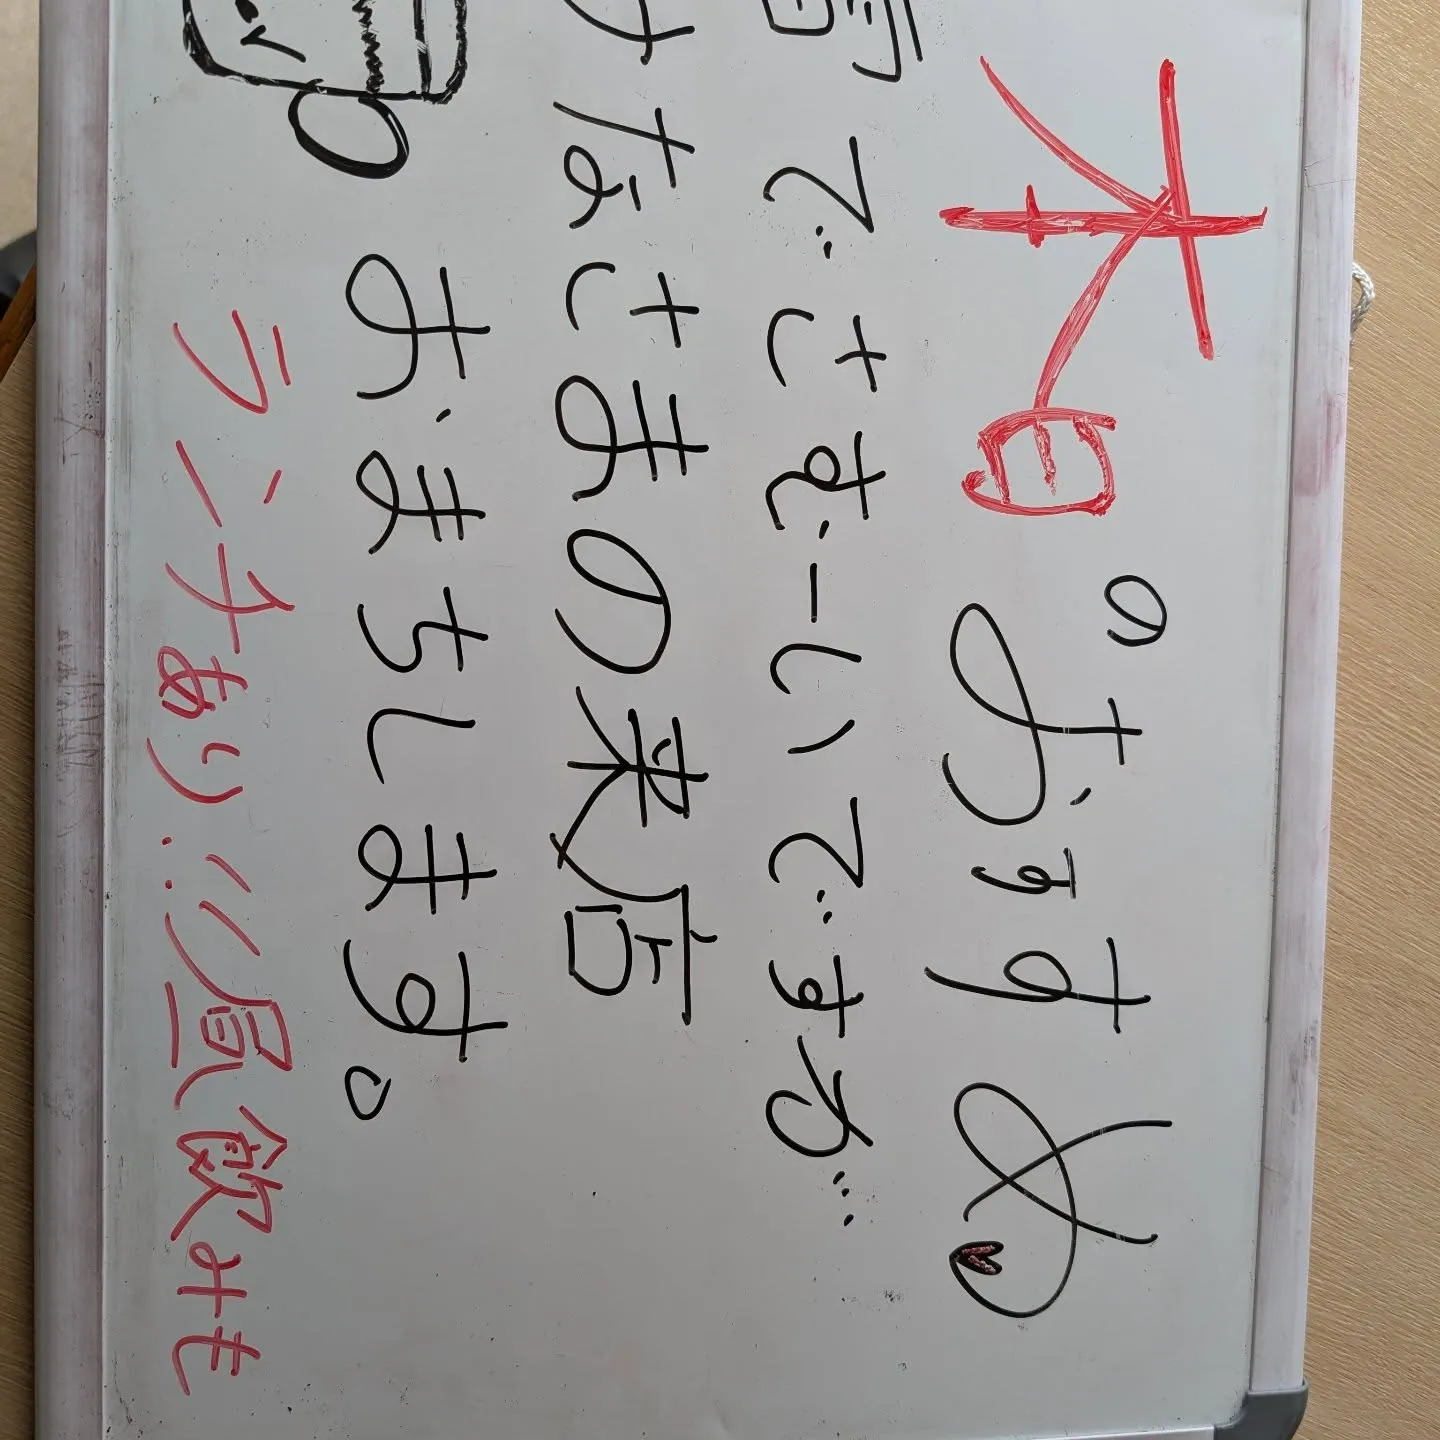 本日のおすすめ
でさむーいですね…
みなさまの来店
おまちします。
ランチあり!!昼飲みも